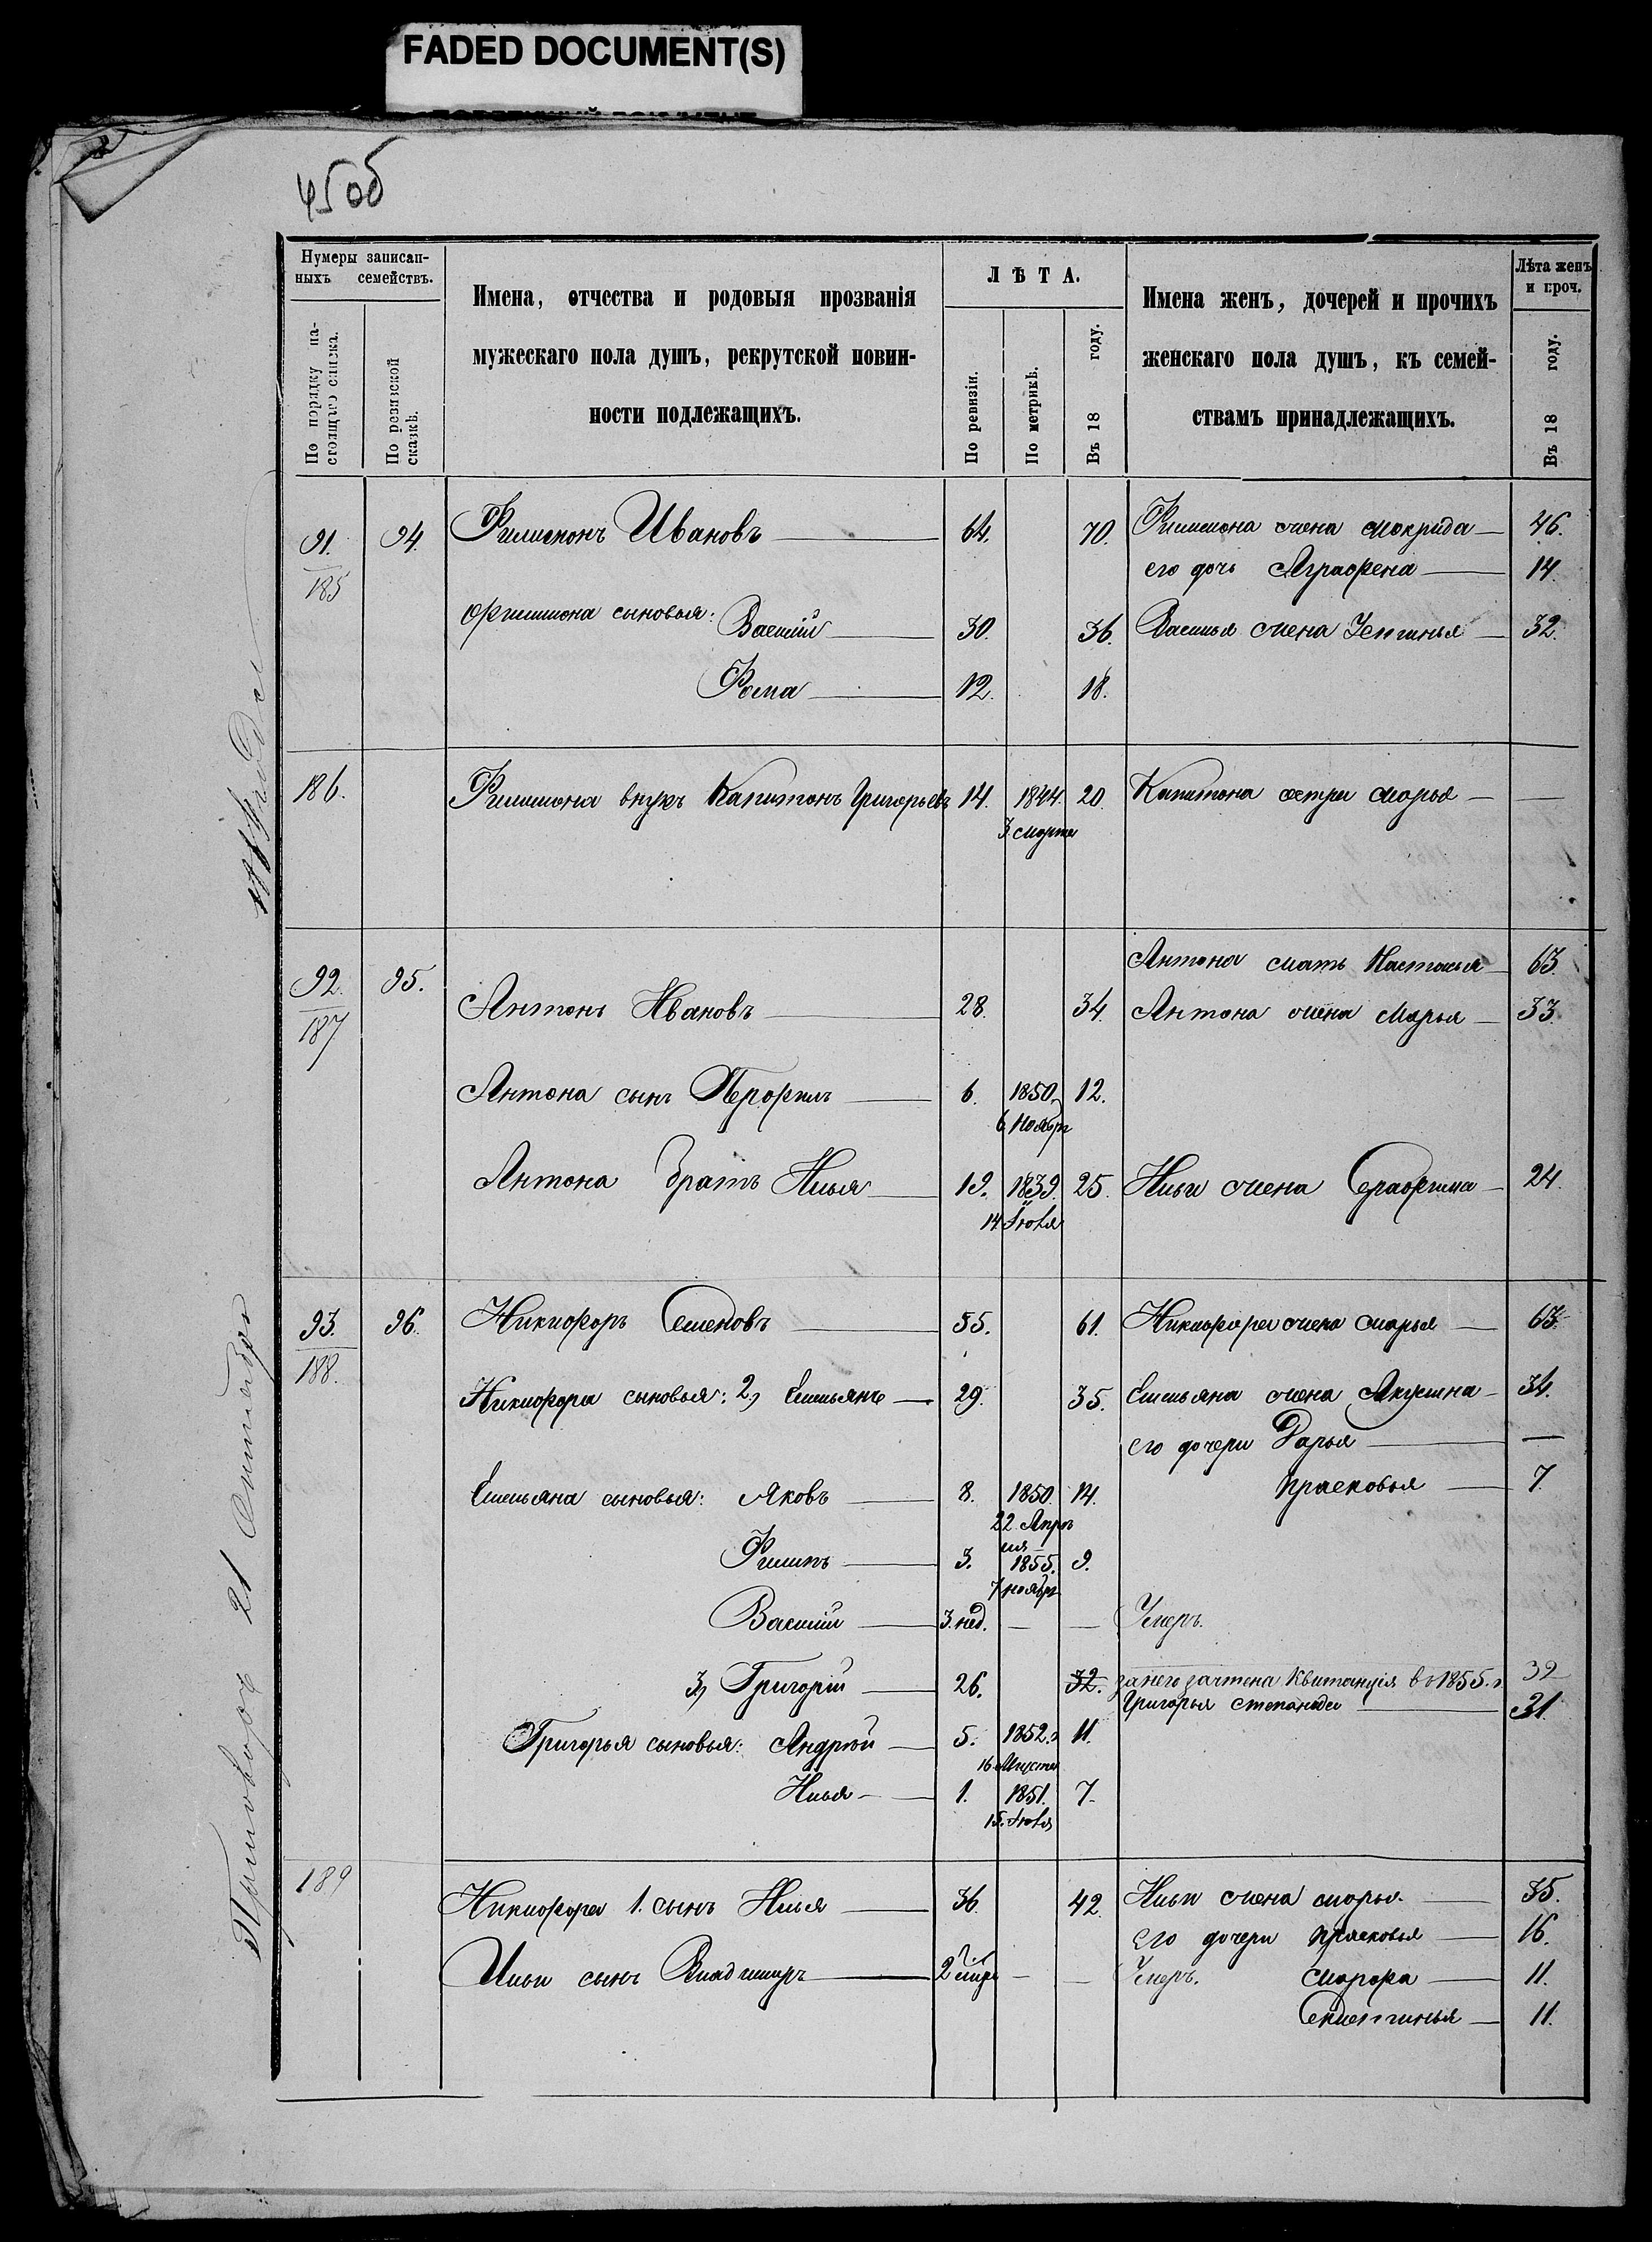 FADED DOCUMENT(S)
45об
Нумеры записан-
ныхъ семействъ.
По порядку на-
стоящаго списка.
По ревизской
сказкѣ.
Имена, отчества и родовыя прозванія
мужескаго пола душъ, рекрутской повин-
ности подлежащихъ.
ЛѢТА.
По ревизіи.
По метрикѣ.
Въ 18 году.
Имена женъ, дочерей и прочихъ
женскаго пола душъ, къ семей-
ствамъ принадлежащихъ.
Лѣта женъ
и проч.
Въ 18 году.
91. 94. Филимонъ Ивановъ 64. 70. Филимона жена Мокрида 46.
185 его дочь Аграфена 14.
Филимона сыновья: Василій 30. 36. Василья жена Устинья 32.
Фома 12. 18.
186. Филимона внукъ Капитонъ Григорьевъ 14. 1844. 20. Капитона сестра Марья —
3 Марта
Антона мать Настасья 63.
92. 95. Антонъ Ивановъ 28. 34. Антона жена Марья 33.
187
Антона сынъ Перфилъ 6. 1850. 12.
6 Ноябр
Антона братъ Илья 19. 1839. 25. Ильи жена Серафима 24.
14 Іюля
93. 96. Никифоръ Семеновъ 55. 61. Никифора жена Марья 63.
188.
Никифора сыновья: 2, Емельянъ 29. 35. Емельяна жена Акулина 34.
его дочери Дарья —
Емельяна сыновья: Яковъ 8. 1850. 14. Прасковья 7.
22 Апрѣ
ля
Филипъ 3. 1855. 9.
7 ноябр
Василій 3. нед. — — Умеръ.
3, Григорій 26. 32. за него зачтена Квитанція въ 1855. г. 32
Григорья Степанида 31.
Григорья сыновья: Андрей 5. 1852. г 11.
16. Августа
Илья 1. 1851. 7.
15. Іюля
189 Никифора 1. сынъ Илья 36. 42. Ильи жена Марья 35.
его дочери Прасковья 16.
Ильи сынъ Владимиръ 2 — — Умеръ. Марфа 11.
11.
21